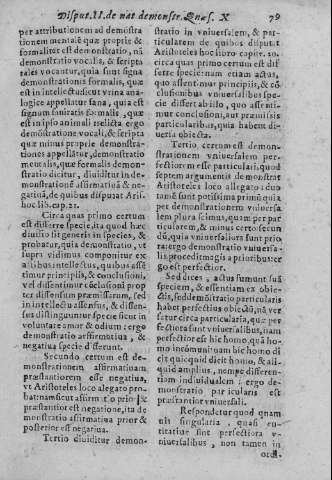 Disput. II. de nat. demonstr. Quæs. X 79
per attributionem ad demostra
tionem mentalē quæ propriè &
formalitèr est demonstratio, nā
demonstratio vocalis, & scripta
tales vocantur, quia sunt signa
demonstrationis formalis, quæ
est in intellectu sicut vrina ana-
logicè appellatur sana, quia est
signum sanitatis formalis, quæ
est in ipso animali relicta ergo
demōstratione vocali, & scripta
quæ minus propriè demonstra-
tiones appellātur, demonstratio
mentalis, quæ formalis demon-
stratio dicitur, diuiditur in de-
monstrationē affirmatiuā & ne-
gatiuā, de quibus disputat Aris.
hoc lib. cap. 21.
Circa quas primo certum
est differre specie, ita quod hæc
diuisio sit generis in species, &
probatur, quia demonstratio, vt
supra vidimus componitur ex
actibus intellectus, quibus assē
timur principijs, & conclusioni,
vel dissentimur cōclusioni prop
ter dissensum præmissarum, sed
in intellectu assensus, & dissen-
sus distinguuntur specie sicut in
voluntate amor & odium: ergo
demōstratio affirmatiua, &
negatiua specie differunt.
Secundo certum est de-
monstrationem affirmatiuam
præstantiorem esse negatiua,
vt Aristoteles loco alegato pro-
bat: nam sicut affirmatio prior &
præstantior est negatione, ita de
monstratio affirmatiua prior &
posterior est negatiua.
Tertio diuiditur demon-
stratio in vniuersalem, & par-
ticularem de quibus disputat
Aristoteles hoc libro capit. 20.
circa quas primo certum est dif
ferre specie: nam etiam actus,
quo assentimur principijs, & cō
clusionibus vniuersalibus spe-
cie differt ab illo, quo assenti-
mur conclusioni, aut præmissis
particularibus, quia habent di-
uersa obiecta.
Tertio certum est demon-
strationem vniuersalem per-
fectiorem esse particulari, quod
septem argumentis demonstrat
Aristoteles loco allegato: duo
tamē sunt potissima primū quia
per demonstrationem vniuersa
lem plura scimus, quam per par
ticularem, & minus certo secun
dū, quia vniuersaliora sunt prio
ra: ergo demonstratio vniuersa-
lis procedit magis a prioribus: er
go est perfectior.
Sed dices, actus sumunt suā
speciem, & essentiam ex obie-
ctis, sed demōstratio particularis
habet perfectius obiectū, nā ver
satur circa particularia, quæ per
fectiora sunt vniuersalibus, nam
perfectior est hic homo, quā ho-
mo in communi nam hic homo di
cit quicquid dicit homo, & ali-
quid amplius, nempe differen-
tiam indiuidualem: ergo de-
monstratio particularis est
præstantior vniuersali.
Respondetur quod quam
uis singularia, quasi en-
titatiuè sint perfectiora v-
niuersalibus, non tamen in
ordi-